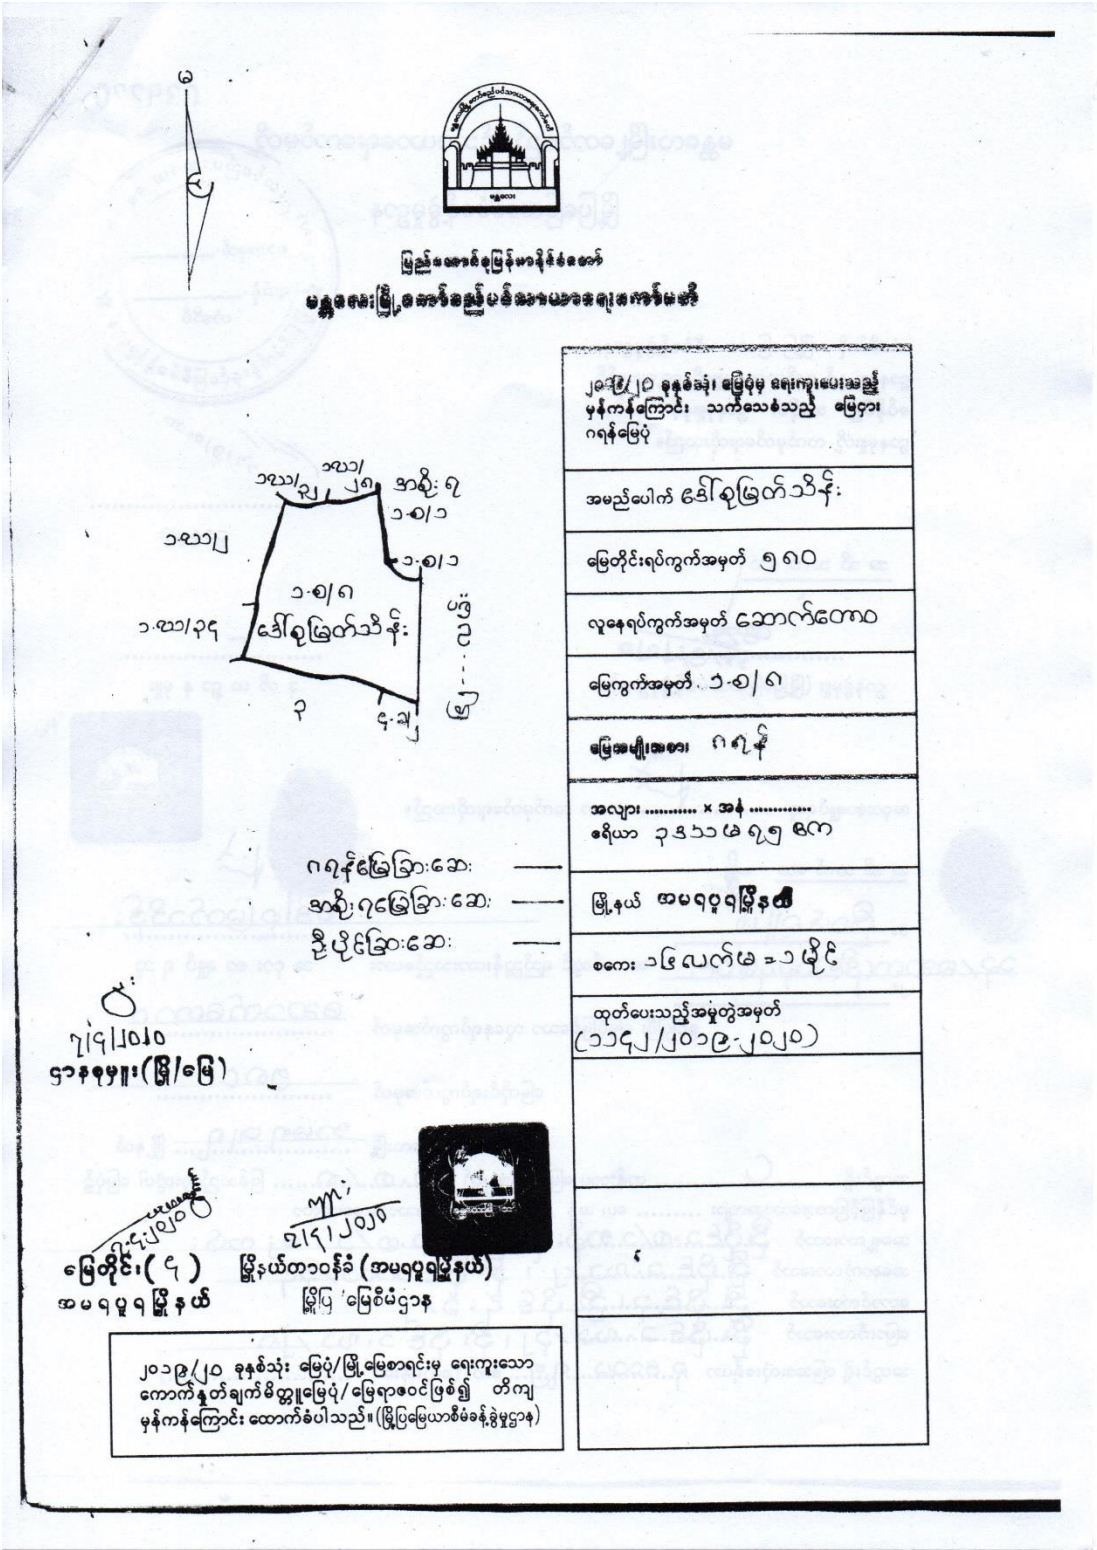 မ
မန္တလေး
ပြည်ထောင်စုမြန်မာနိုင်ငံတော်
မန္တလေးမြို့တော်စည်ပင်သာယာရေးကော်မတီ
၂၀၁၉/၂၀ ခုနှစ်သုံး မြေပုံမှ ရေးကူးပေးသည့်
မှန်ကန်ကြောင်း သက်သေခံသည့် မြေငှား
ဂရန်မြေပုံ
အမည်ပေါက် ဒေါ်စုမြတ်သိန်း
မြေတိုင်းရပ်ကွက်အမှတ် ၅၈၀
လူနေရပ်ကွက်အမှတ် ဆောက်တောဝ
မြေကွက်အမှတ် ၁-စ/၈
မြေအမျိုးအစား ဂရန်
အလျား ........... × အနံ .............
ဧရိယာ ၃ဒသမ ၅ ဧက
မြို့နယ် အမရပူရမြို့နယ်
စကေး ၁၆ လက်မ = ၁ မိုင်
ထုတ်ပေးသည့်အမှုတွဲအမှတ်
(၁၁၄၂/၂၀၁၉-၂၀၂၀)
၁-ဃ/၃၂
၁-ဃ/၂၈
အစိုးရ
၁-စ/၁
၁-ဃ/၂
၁-စ/၁
၁-စ/၈
ဒေါ်စုမြတ်သိန်း
၁-ဃ/၃၄
၃
ဂရန်မြေခြားဆေး
အစိုးရမြေခြားဆေး
ဦးပိုင်ခြားဆေး
၇/၄/၂၀၂၀
ဌာနစုမှူး(မြို့/မြေ)
၇.၄.၂၀၂၀
၇/၄/၂၀၂၀
မြေတိုင်း(၄)
အမရပူရမြို့နယ်
မြို့နယ်တာဝန်ခံ (အမရပူရမြို့နယ်)
မြို့ပြ မြေစီမံဌာန
၂၀၁၉/၂၀ ခုနှစ်သုံး မြေပုံ/မြို့မြေစာရင်းမှ ရေးကူးသော
ကောက်နှုတ်ချက်မိတ္တူမြေပုံ/မြေရာဇဝင်ဖြစ်၍ တိကျ
မှန်ကန်ကြောင်း ထောက်ခံပါသည်။ (မြို့ပြမြေယာစီမံခန့်ခွဲမှုဌာန)